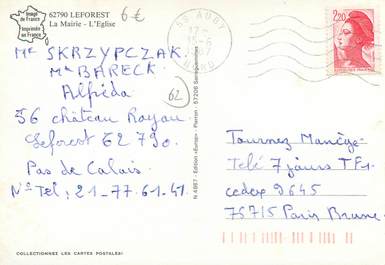 Image
de France
Imprimée
en France
62790 LEFOREST
La Mairie - L'Eglise
6€
59 AUBY
NORD
2,20
Mr SKRZYPCZAK.
Me BARECK
Alfréda
62
56 château Royau
Leforest 62790.
Pas de Calais.
No Tel; 21-77.61.41
N 4867 - Edition «Europ» - Pierron - 57206 Sarreguemines
Tournez Manège
Telé 7 jours TF1.
cedex 9645
75715 Paris Brune
COLLECTIONNEZ LES CARTES POSTALES!